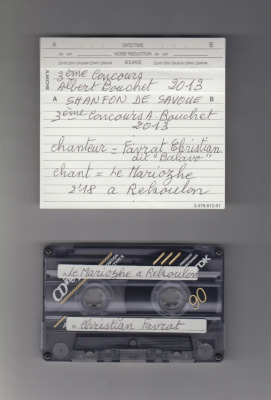 A DATE/TIME B
NOISE REDUCTION
SONY SOURCE
3ème Concours
Albert Bouchet 2013
A SHANFON DE SAVOUE B
3ème Concours A Bouchet
2013
chanteur = Favrat Christian
dit "Balavo"
chant = Le Mariozhe
2'18 a Reboulon
2-478-512-61
Le Mariozhe a Reboulon
CD
FOX
90
Christian Favrat